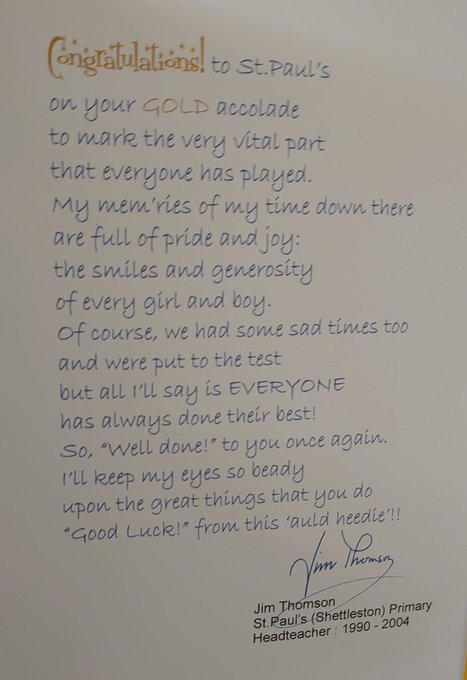 Congratulations! to St.Paul's
on your GOLD accolade
to mark the very vital part
that everyone has played.
My mem'ries of my time down there
are full of pride and joy:
the smiles and generosity
of every girl and boy.
Of course, we had some sad times too
and were put to the test
but all I'll say is EVERYONE
has always done their best!
So, "Well done!" to you once again.
I'll keep my eyes so beady
upon the great things that you do
"Good Luck!" from this 'auld heedie'!!
Jim Thomson
Jim Thomson
St.Paul's (Shettleston) Primary
Headteacher : 1990 - 2004